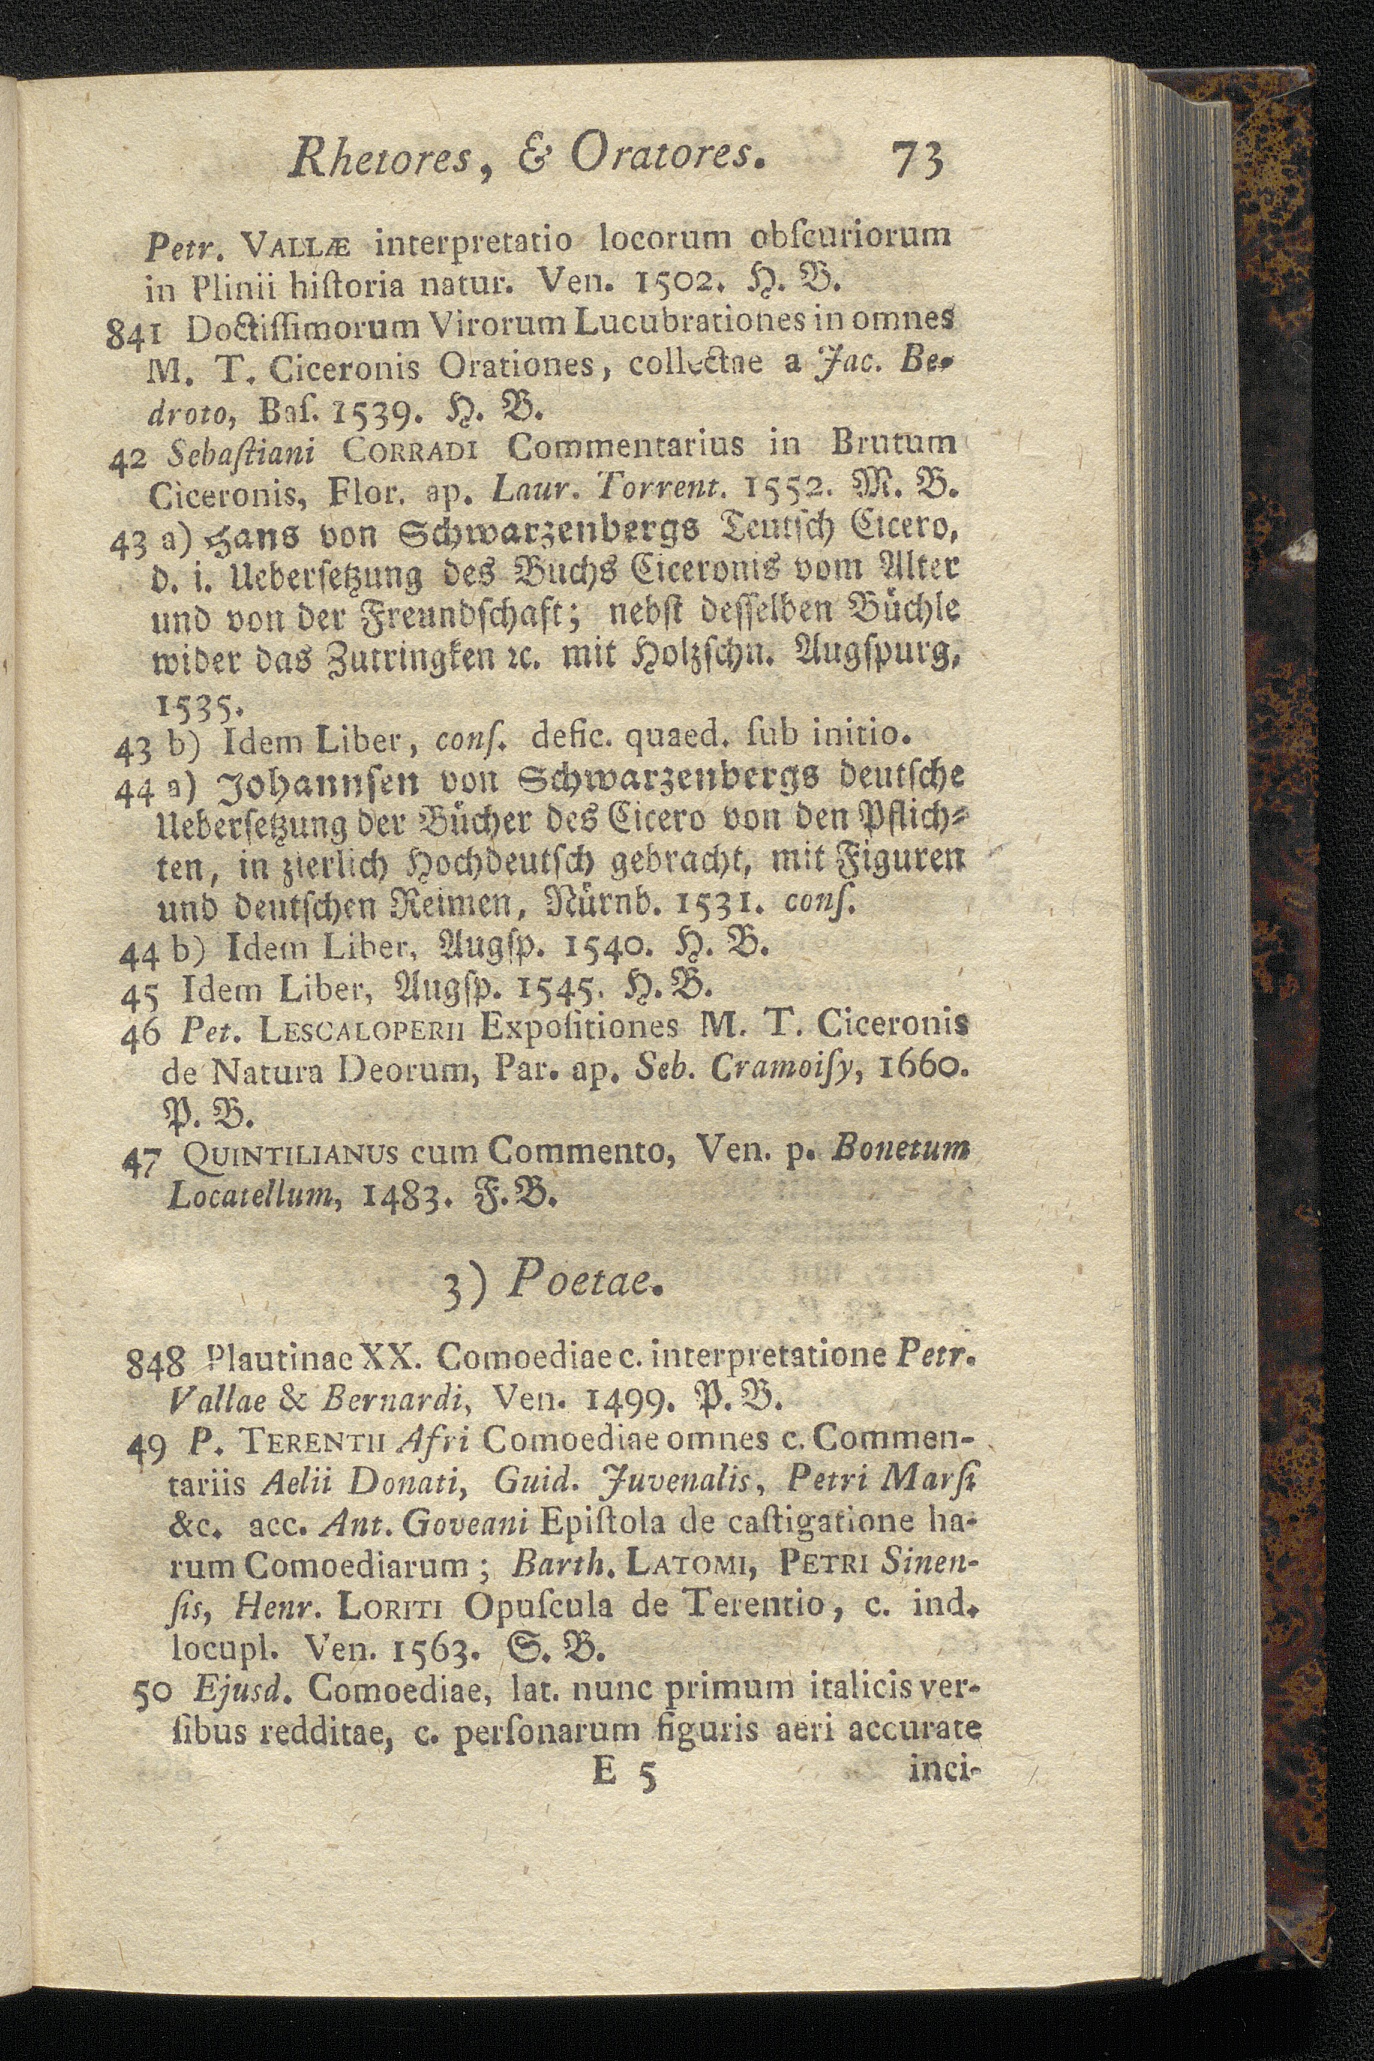 Rhetores, & Oratores. 73
Petr. VALLÆ interpretatio locorum obſcuriorum
in Plinii hiſtoria natur. Ven. 1502. H. B.
841 Doctiſſimorum Virorum Lucubrationes in omnes
M. T. Ciceronis Orationes, collectae a Jac. Be-
droto, Baſ. 1539. H. B.
42 Sebaſtiani CORRADI Commentarius in Brutum
Ciceronis, Flor. ap. Laur. Torrent. 1552. M. B.
43 a) Hans von Schwarzenbergs Teutſch Cicero,
d. i. Ueberſetzung des Buchs Ciceronis vom Alter
und von der Freundſchaft; nebſt deſſelben Büchle
wider das Zutringken ꝛc. mit Holzſchn. Augſpurg,
1535.
43 b) Idem Liber, conſ. defic. quaed. ſub initio.
44 a) Johannſen von Schwarzenbergs deutſche
Ueberſetzung der Bücher des Cicero von den Pflich-
ten, in zierlich Hochdeutſch gebracht, mit Figuren
und deutſchen Reimen, Nürnb. 1531. conſ.
44 b) Idem Liber, Augſp. 1540. H. B.
45 Idem Liber, Augſp. 1545. H. B.
46 Pet. LESCALOPERII Expoſitiones M. T. Ciceronis
de Natura Deorum, Par. ap. Seb. Cramoiſy, 1660.
P. B.
47 QUINTILIANUS cum Commento, Ven. p. Bonetum
Locatellum, 1483. F. B.
3) Poetae.
848 Plautinae XX. Comoediae c. interpretatione Petr.
Vallae & Bernardi, Ven. 1499. P. B.
49 P. TERENTII Afri Comoediae omnes c. Commen-
tariis Aelii Donati, Guid. Juvenalis, Petri Marſi
&c. acc. Ant. Goveani Epiſtola de caſtigatione ha-
rum Comoediarum; Barth. LATOMI, PETRI Sinen-
ſis, Henr. LORITI Opuſcula de Terentio, c. ind.
locupl. Ven. 1563. S. B.
50 Ejusd. Comoediae, lat. nunc primum italicis ver-
ſibus redditae, c. perſonarum figuris aeri accurate
E 5 inci-